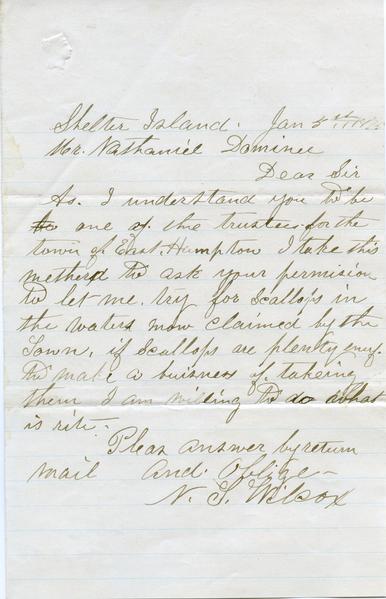 Shelter Island. Jan 5th
Mr. Nathaniel Dominee
Dear Sir
As. I understand you to be
to one of the trustees for the
town of East. Hampton I take this
metherd to ask your permision
to let me. try for Scallops in
the waters now claimed by the
Town, if Scallops are plenty enuf
to make a buisness of takeing
them I am willing to do what
is rite-
Pleas answer by return
mail and Obblige-
N. S. Wilcox